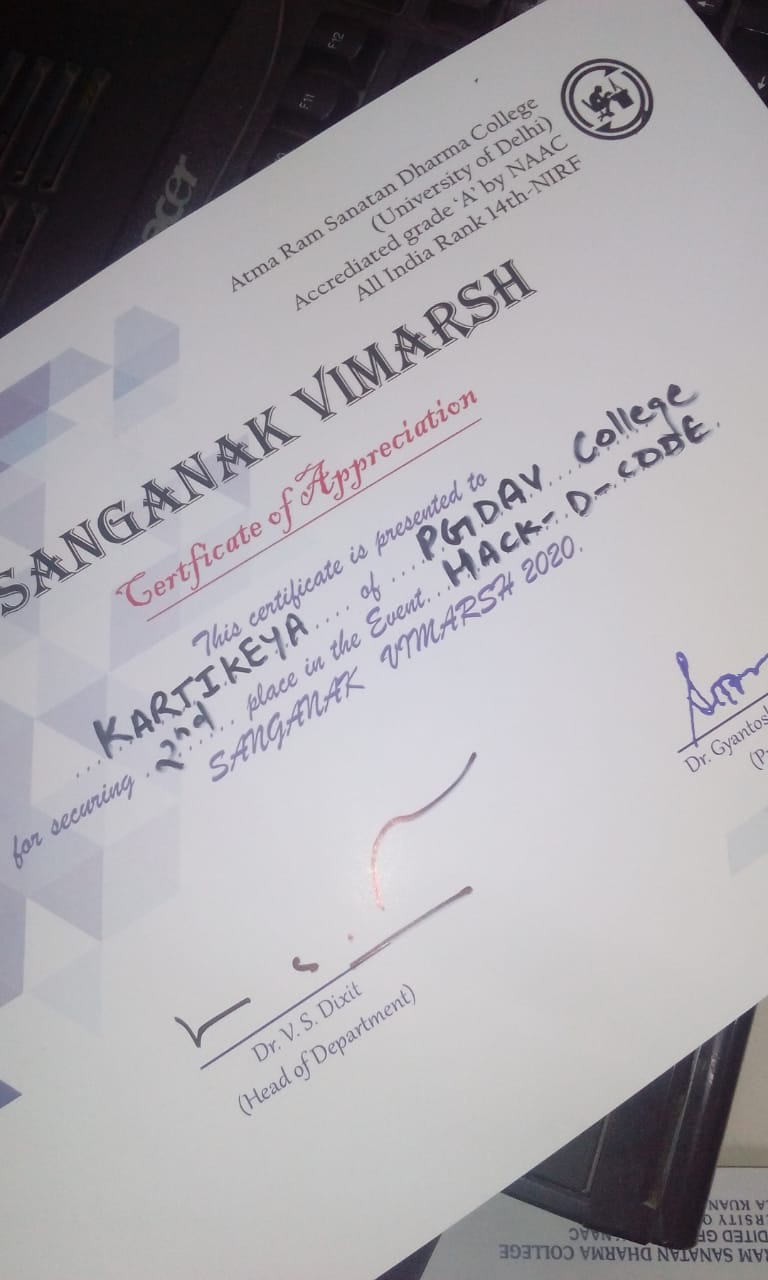 F12
F11
acer
Atma Ram Sanatan Dharma College
(University of Delhi)
Accrediated grade ‘A’ by NAAC
All India Rank 14th-NIRF
SANGANAK VIMARSH
Certficate of Appreciation
This certificate is presented to
...KARTIKEYA.... of ....PGDAV...College
for securing ..2nd...... place in the Event...HACK-D-CODE.
SANGANAK VIMARSH 2020.
Dr. Gyantosh
V S.
Dr. V. S. Dixit
(Head of Department)
RAM SANATAN DHARMA COLLEGE
NAAC